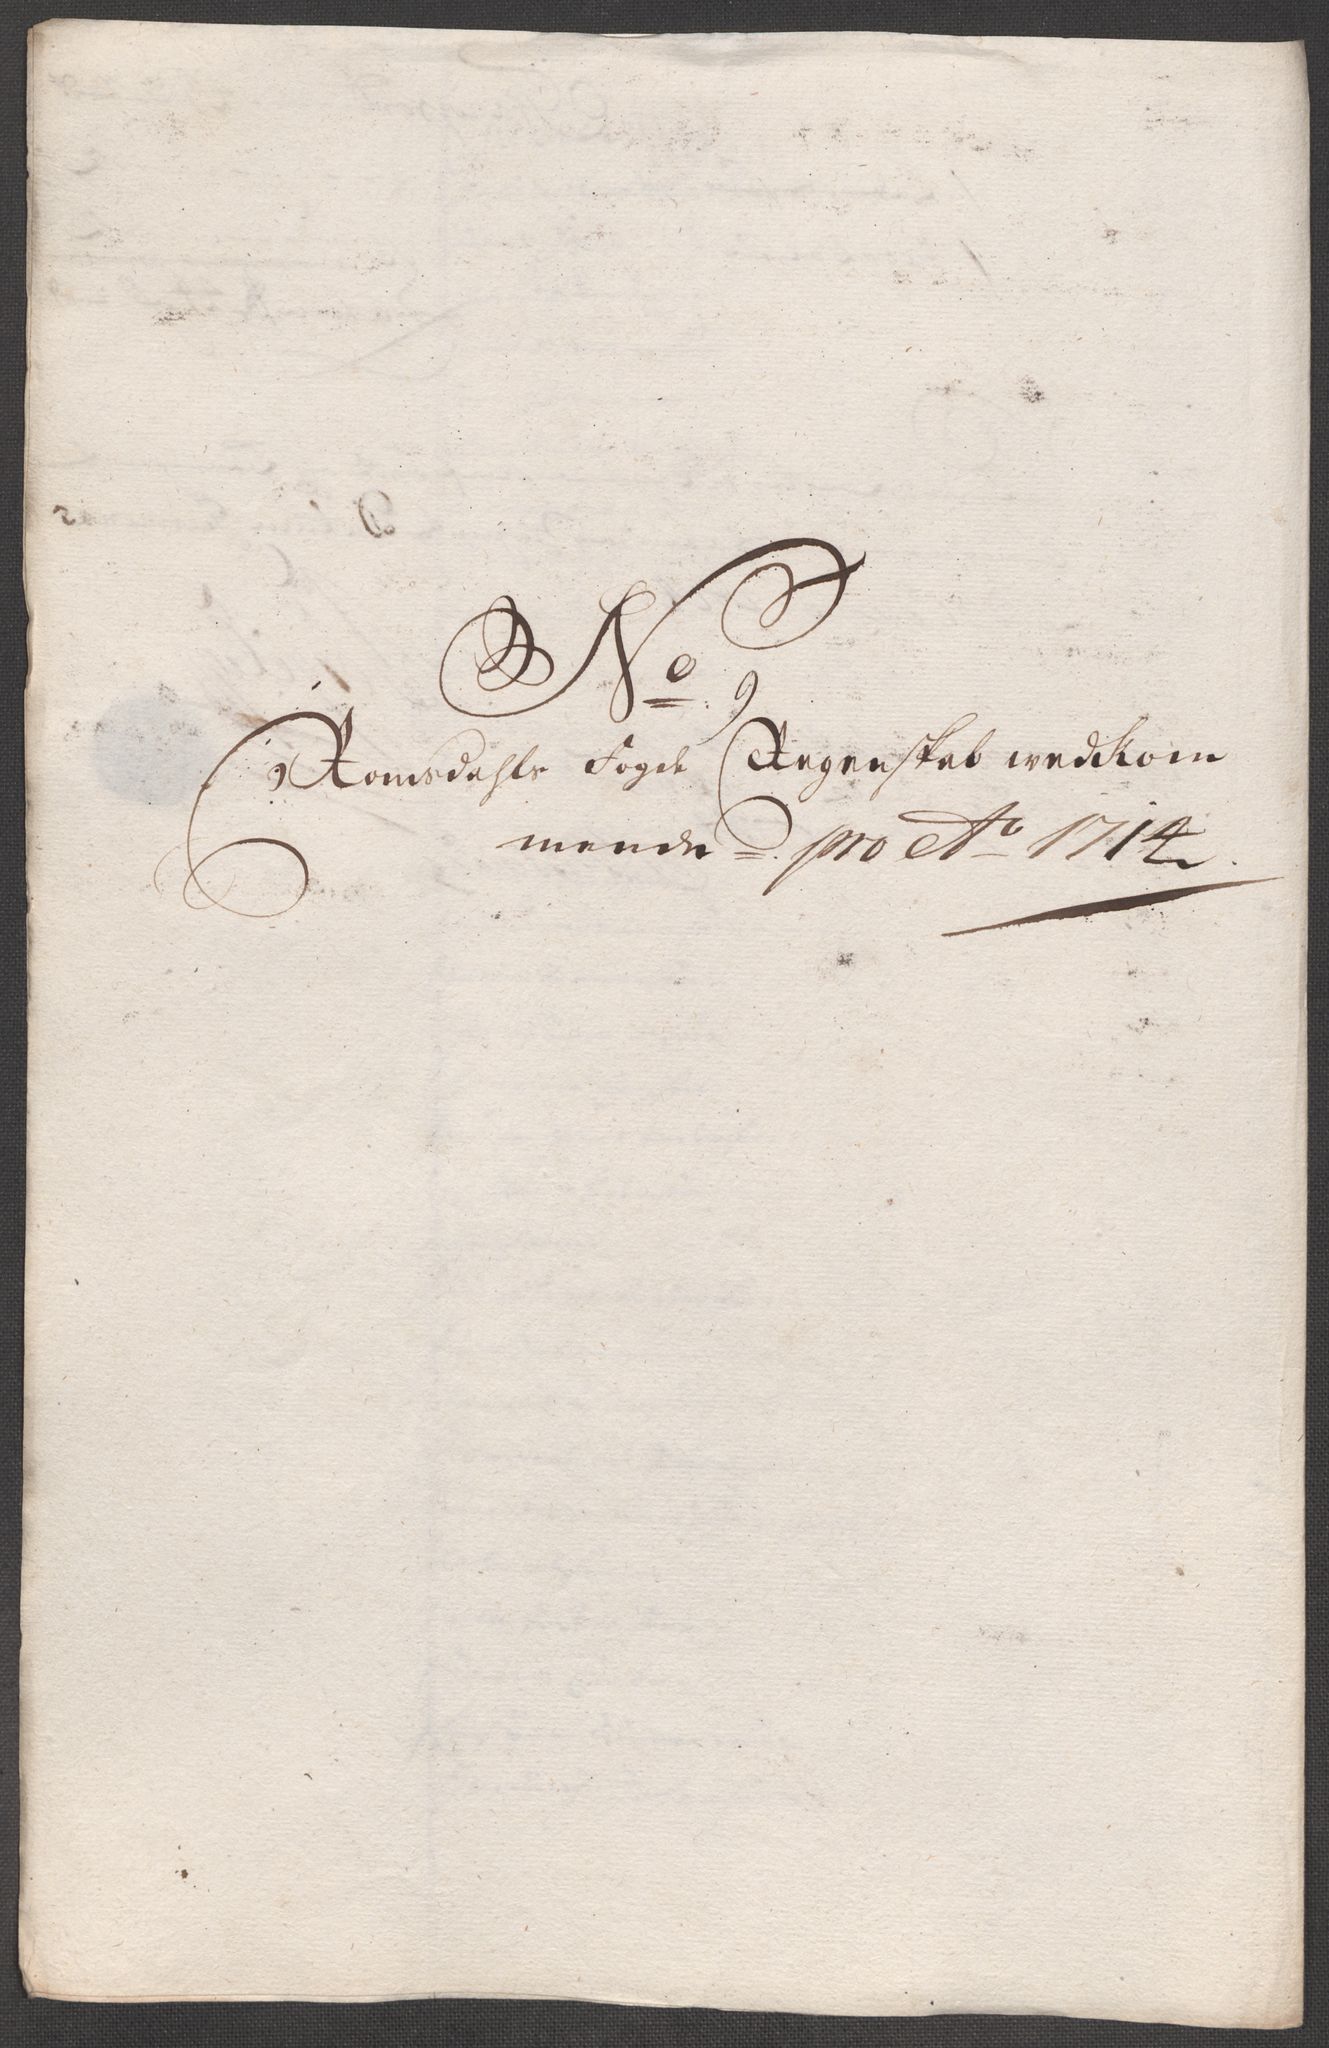 No 9
Romsdahls Fogde Regenskab wedkom
mende = pro Ao 1714